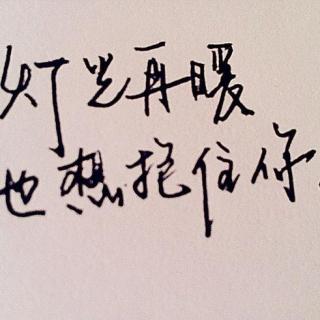 灯光再暖
也想抱住你.